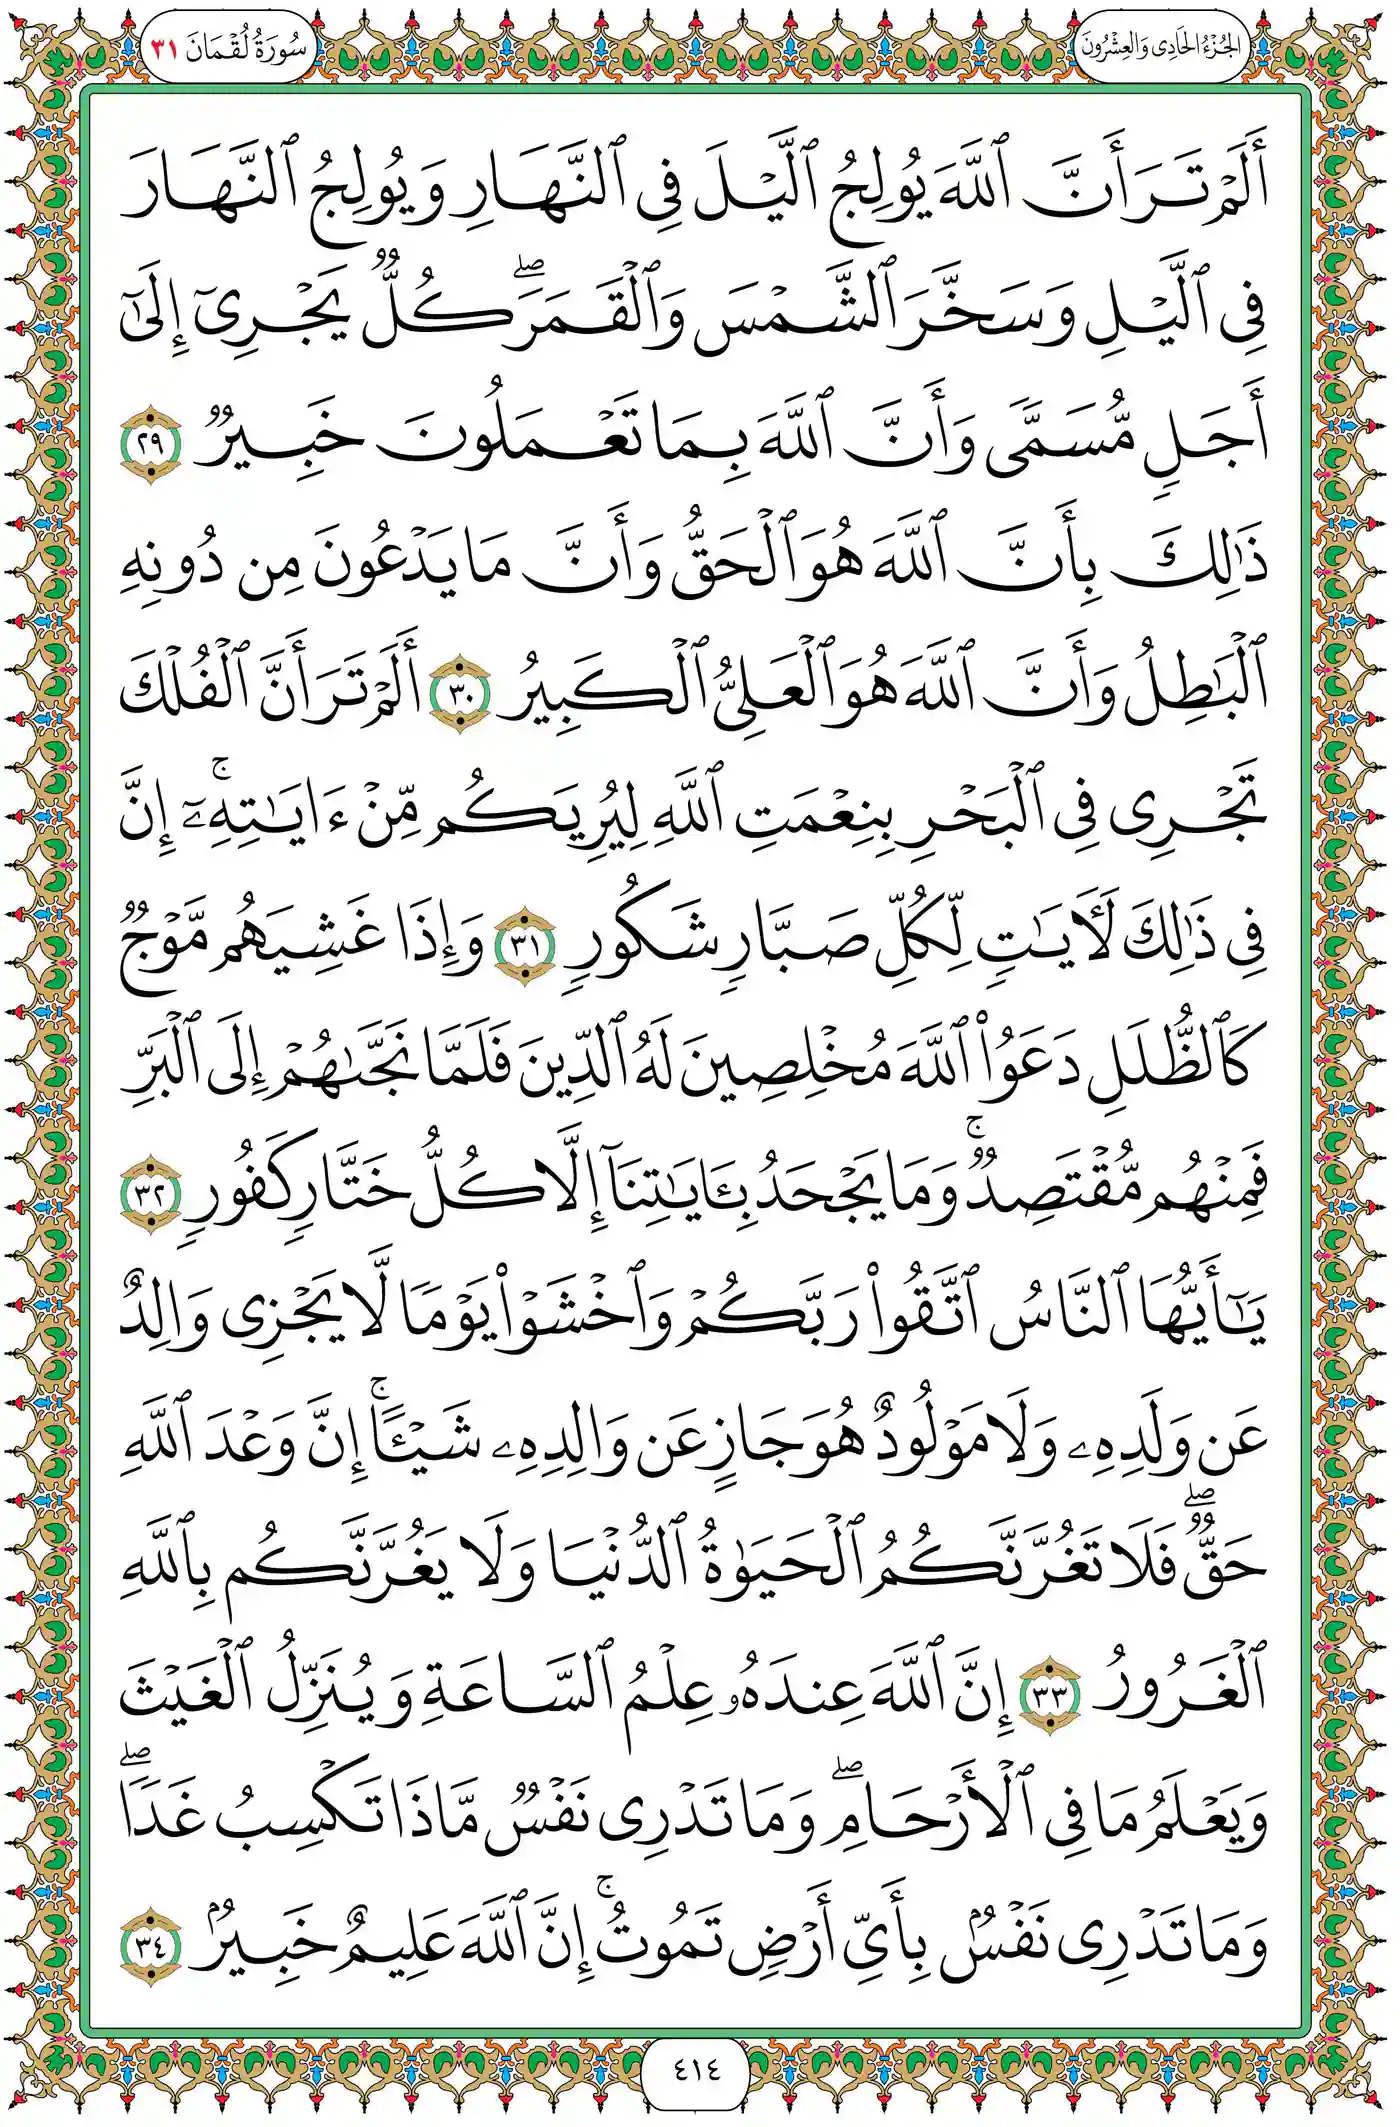 الجُزْءُ الحَادِى وَالعِشْرُونَ
سُورَةُ لُقْمَانَ ٣١
أَلَمْ تَرَ أَنَّ ٱللَّهَ يُولِجُ ٱلَّيْلَ فِى ٱلنَّهَارِ وَيُولِجُ ٱلنَّهَارَ
فِى ٱلَّيْلِ وَسَخَّرَ ٱلشَّمْسَ وَٱلْقَمَرَۖ كُلٌّ يَجْرِىٓ إِلَىٰٓ
أَجَلٍ مُّسَمًّى وَأَنَّ ٱللَّهَ بِمَا تَعْمَلُونَ خَبِيرٌ ٢٩
ذَٰلِكَ بِأَنَّ ٱللَّهَ هُوَ ٱلْحَقُّ وَأَنَّ مَا يَدْعُونَ مِن دُونِهِ
ٱلْبَٰطِلُ وَأَنَّ ٱللَّهَ هُوَ ٱلْعَلِىُّ ٱلْكَبِيرُ ٣٠ أَلَمْ تَرَ أَنَّ ٱلْفُلْكَ
تَجْرِى فِى ٱلْبَحْرِ بِنِعْمَتِ ٱللَّهِ لِيُرِيَكُم مِّنْ ءَايَٰتِهِۦٓۚ إِنَّ
فِى ذَٰلِكَ لَءَايَٰتٍ لِّكُلِّ صَبَّارٍ شَكُورٍ ٣١ وَإِذَا غَشِيَهُم مَّوْجٌ
كَٱلظُّلَلِ دَعَوُا۟ ٱللَّهَ مُخْلِصِينَ لَهُ ٱلدِّينَ فَلَمَّا نَجَّىٰهُمْ إِلَى ٱلْبَرِّ
فَمِنْهُم مُّقْتَصِدٌۚ وَمَا يَجْحَدُ بِـَٔايَٰتِنَآ إِلَّا كُلُّ خَتَّارٍ كَفُورٍ ٣٢
يَٰٓأَيُّهَا ٱلنَّاسُ ٱتَّقُوا۟ رَبَّكُمْ وَٱخْشَوْا۟ يَوْمًا لَّا يَجْزِى وَالِدٌ
عَن وَلَدِهِۦ وَلَا مَوْلُودٌ هُوَ جَازٍ عَن وَالِدِهِۦ شَيْـًٔاۚ إِنَّ وَعْدَ ٱللَّهِ
حَقٌّۖ فَلَا تَغُرَّنَّكُمُ ٱلْحَيَوٰةُ ٱلدُّنْيَا وَلَا يَغُرَّنَّكُم بِٱللَّهِ
ٱلْغَرُورُ ٣٣ إِنَّ ٱللَّهَ عِندَهُۥ عِلْمُ ٱلسَّاعَةِ وَيُنَزِّلُ ٱلْغَيْثَ
وَيَعْلَمُ مَا فِى ٱلْأَرْحَامِۖ وَمَا تَدْرِى نَفْسٌ مَّاذَا تَكْسِبُ غَدًاۖ
وَمَا تَدْرِى نَفْسٌۢ بِأَىِّ أَرْضٍ تَمُوتُۚ إِنَّ ٱللَّهَ عَلِيمٌ خَبِيرٌۢ ٣٤
٤١٤